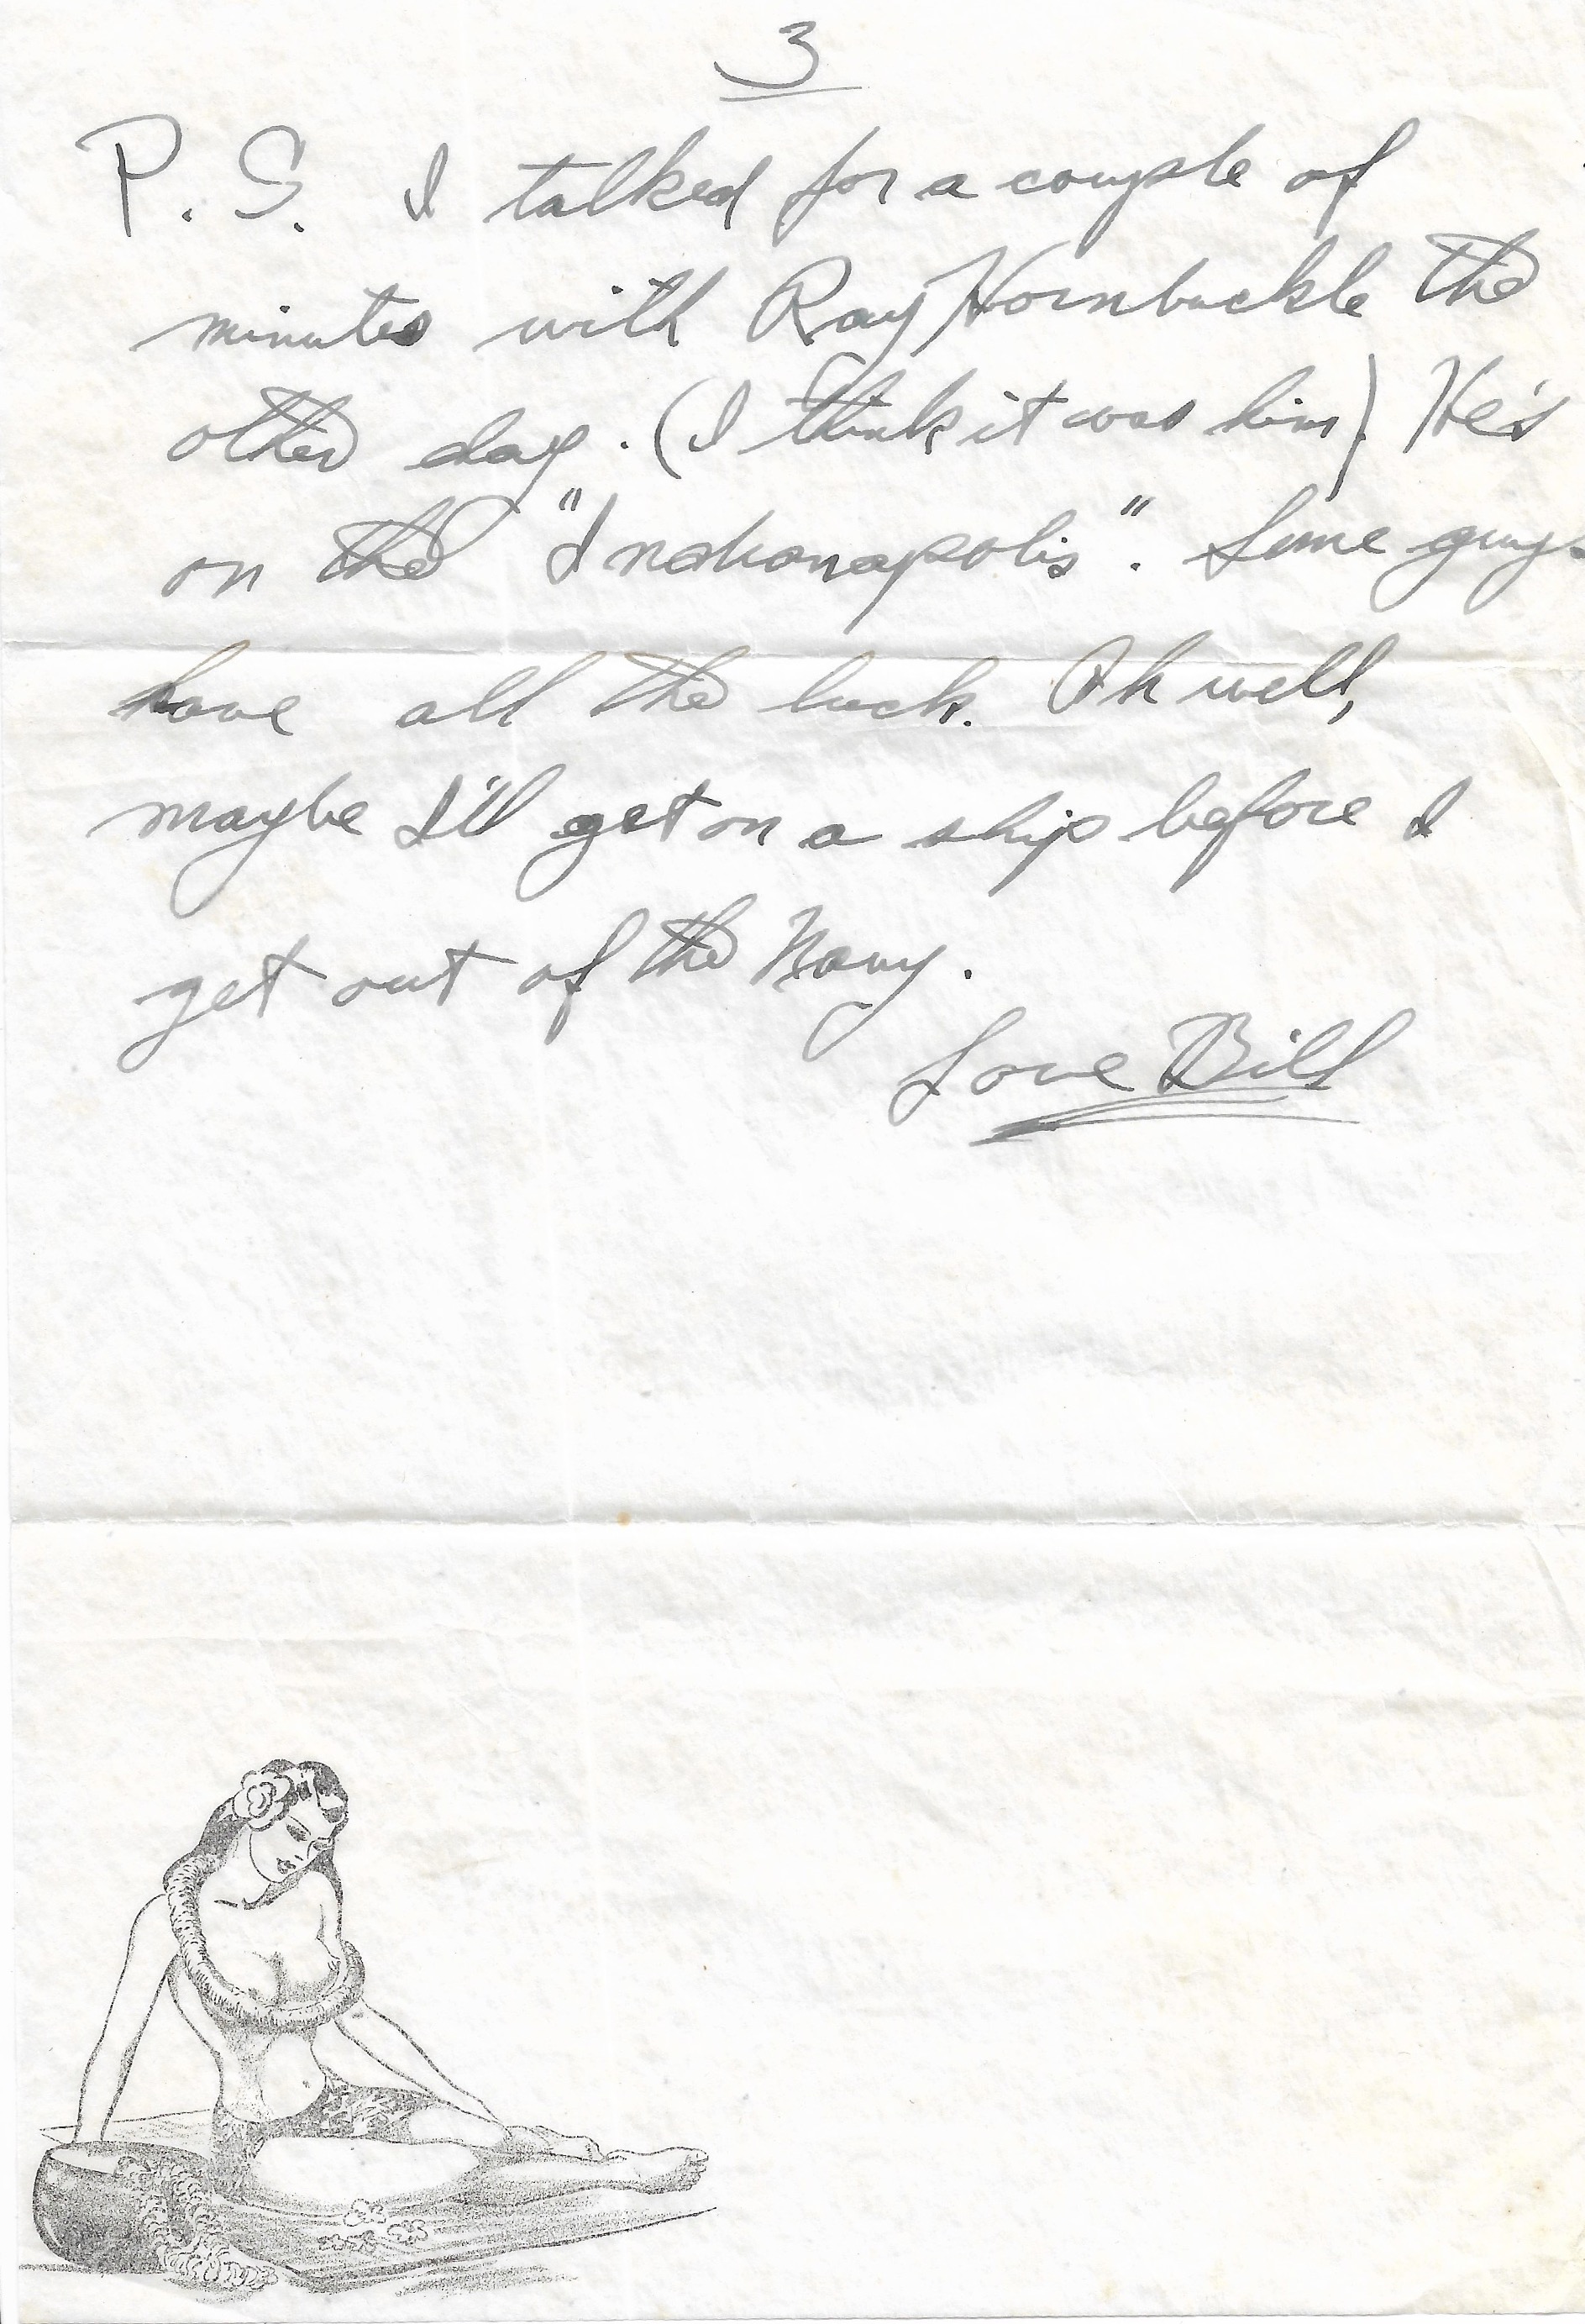 3
P. S. I talked for a couple of
minutes with Ray Hornbuckle the
other day. (I think it was him). He's
on the "Indianapolis". Some guys
have all the luck. Oh well,
maybe I'll get on a ship before I
get out of the Navy.
Love Bill